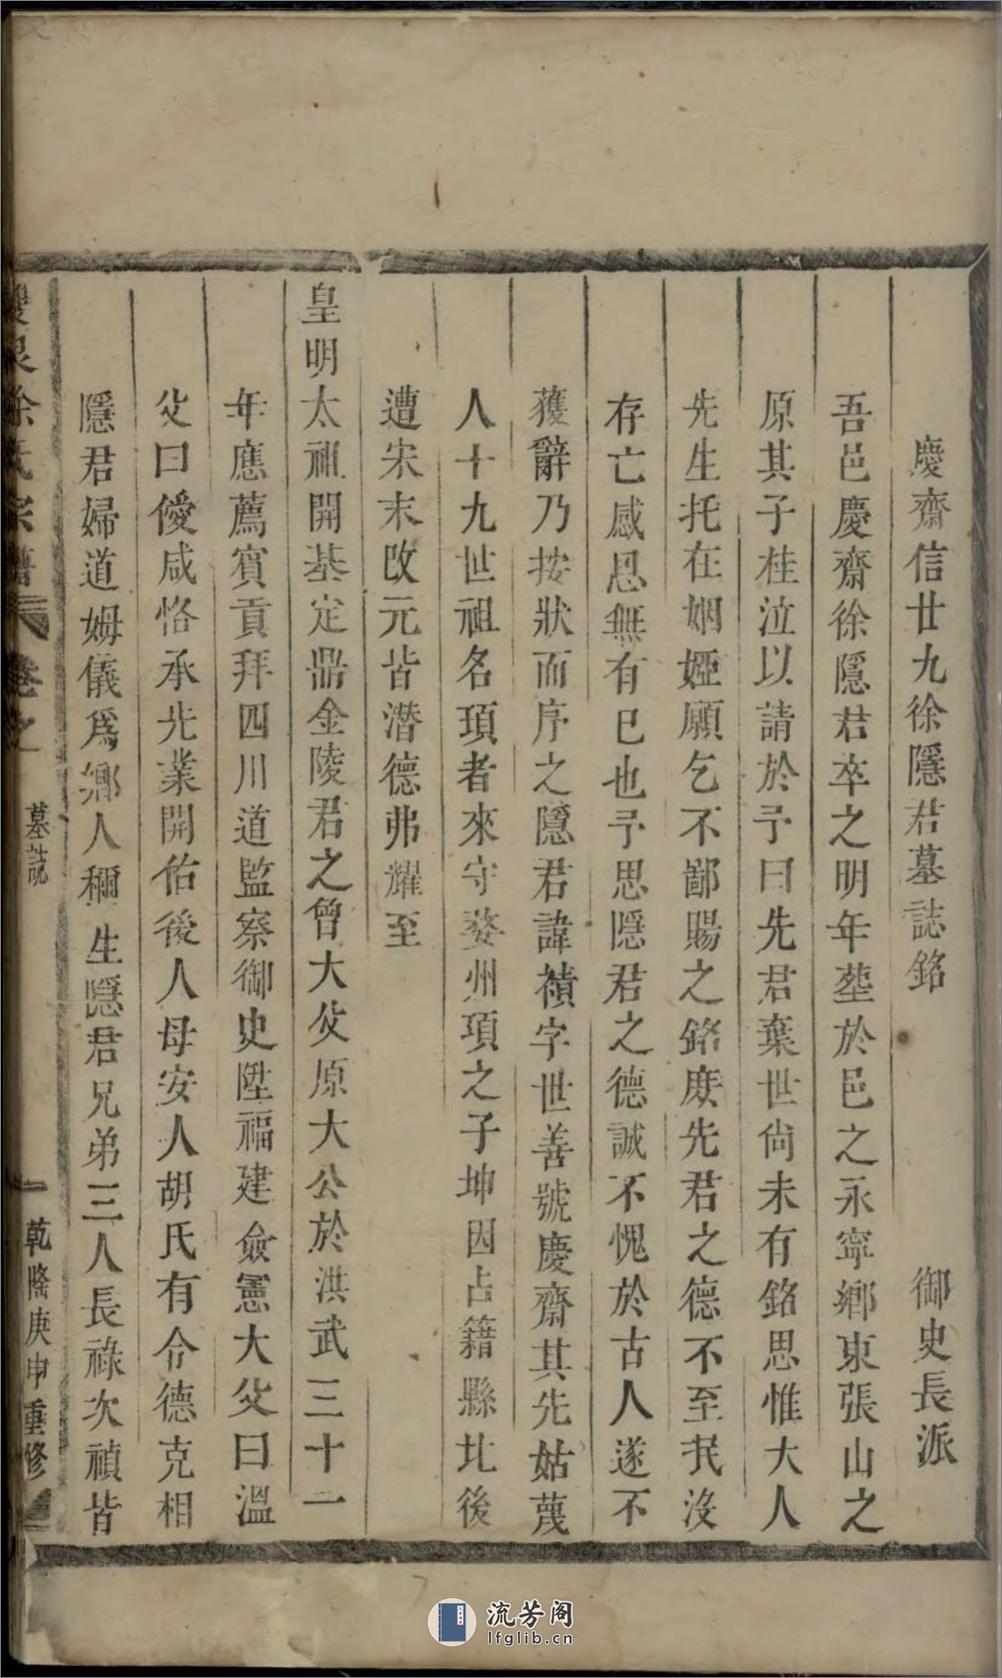 慶齋信廿九徐隱君墓誌銘 御史長派
吾邑慶齋徐隱君卒之明年塟於邑之永寧鄉東張山之
原其子桂泣以請於予曰先君棄世尙未有銘思惟大人
先生托在姻婭願乞不鄙賜之銘庶先君之德不至泯沒
存亡感恩無有已也予思隱君之德誠不愧於古人遂不
獲辭乃按狀而序之隱君諱禎字世善號慶齋其先姑蔑
人十九世祖名項者來守婺州項之子坤因占籍縣北後
遭宋末改元皆潛德弗耀至
皇明太祖開基定鼎金陵君之曾大父原大公於洪武三十一
年應薦賓貢拜四川道監察御史陞福建僉憲大父曰溫
父曰優咸恪承先業開佑後人母安人胡氏有令德克相
隱君婦道姆儀爲鄉人稱生隱君兄弟三人長祿次禎皆
徐氏宗譜 卷之 墓誌 一 乾隆庚申重修
流芳阁
lfglib.cn